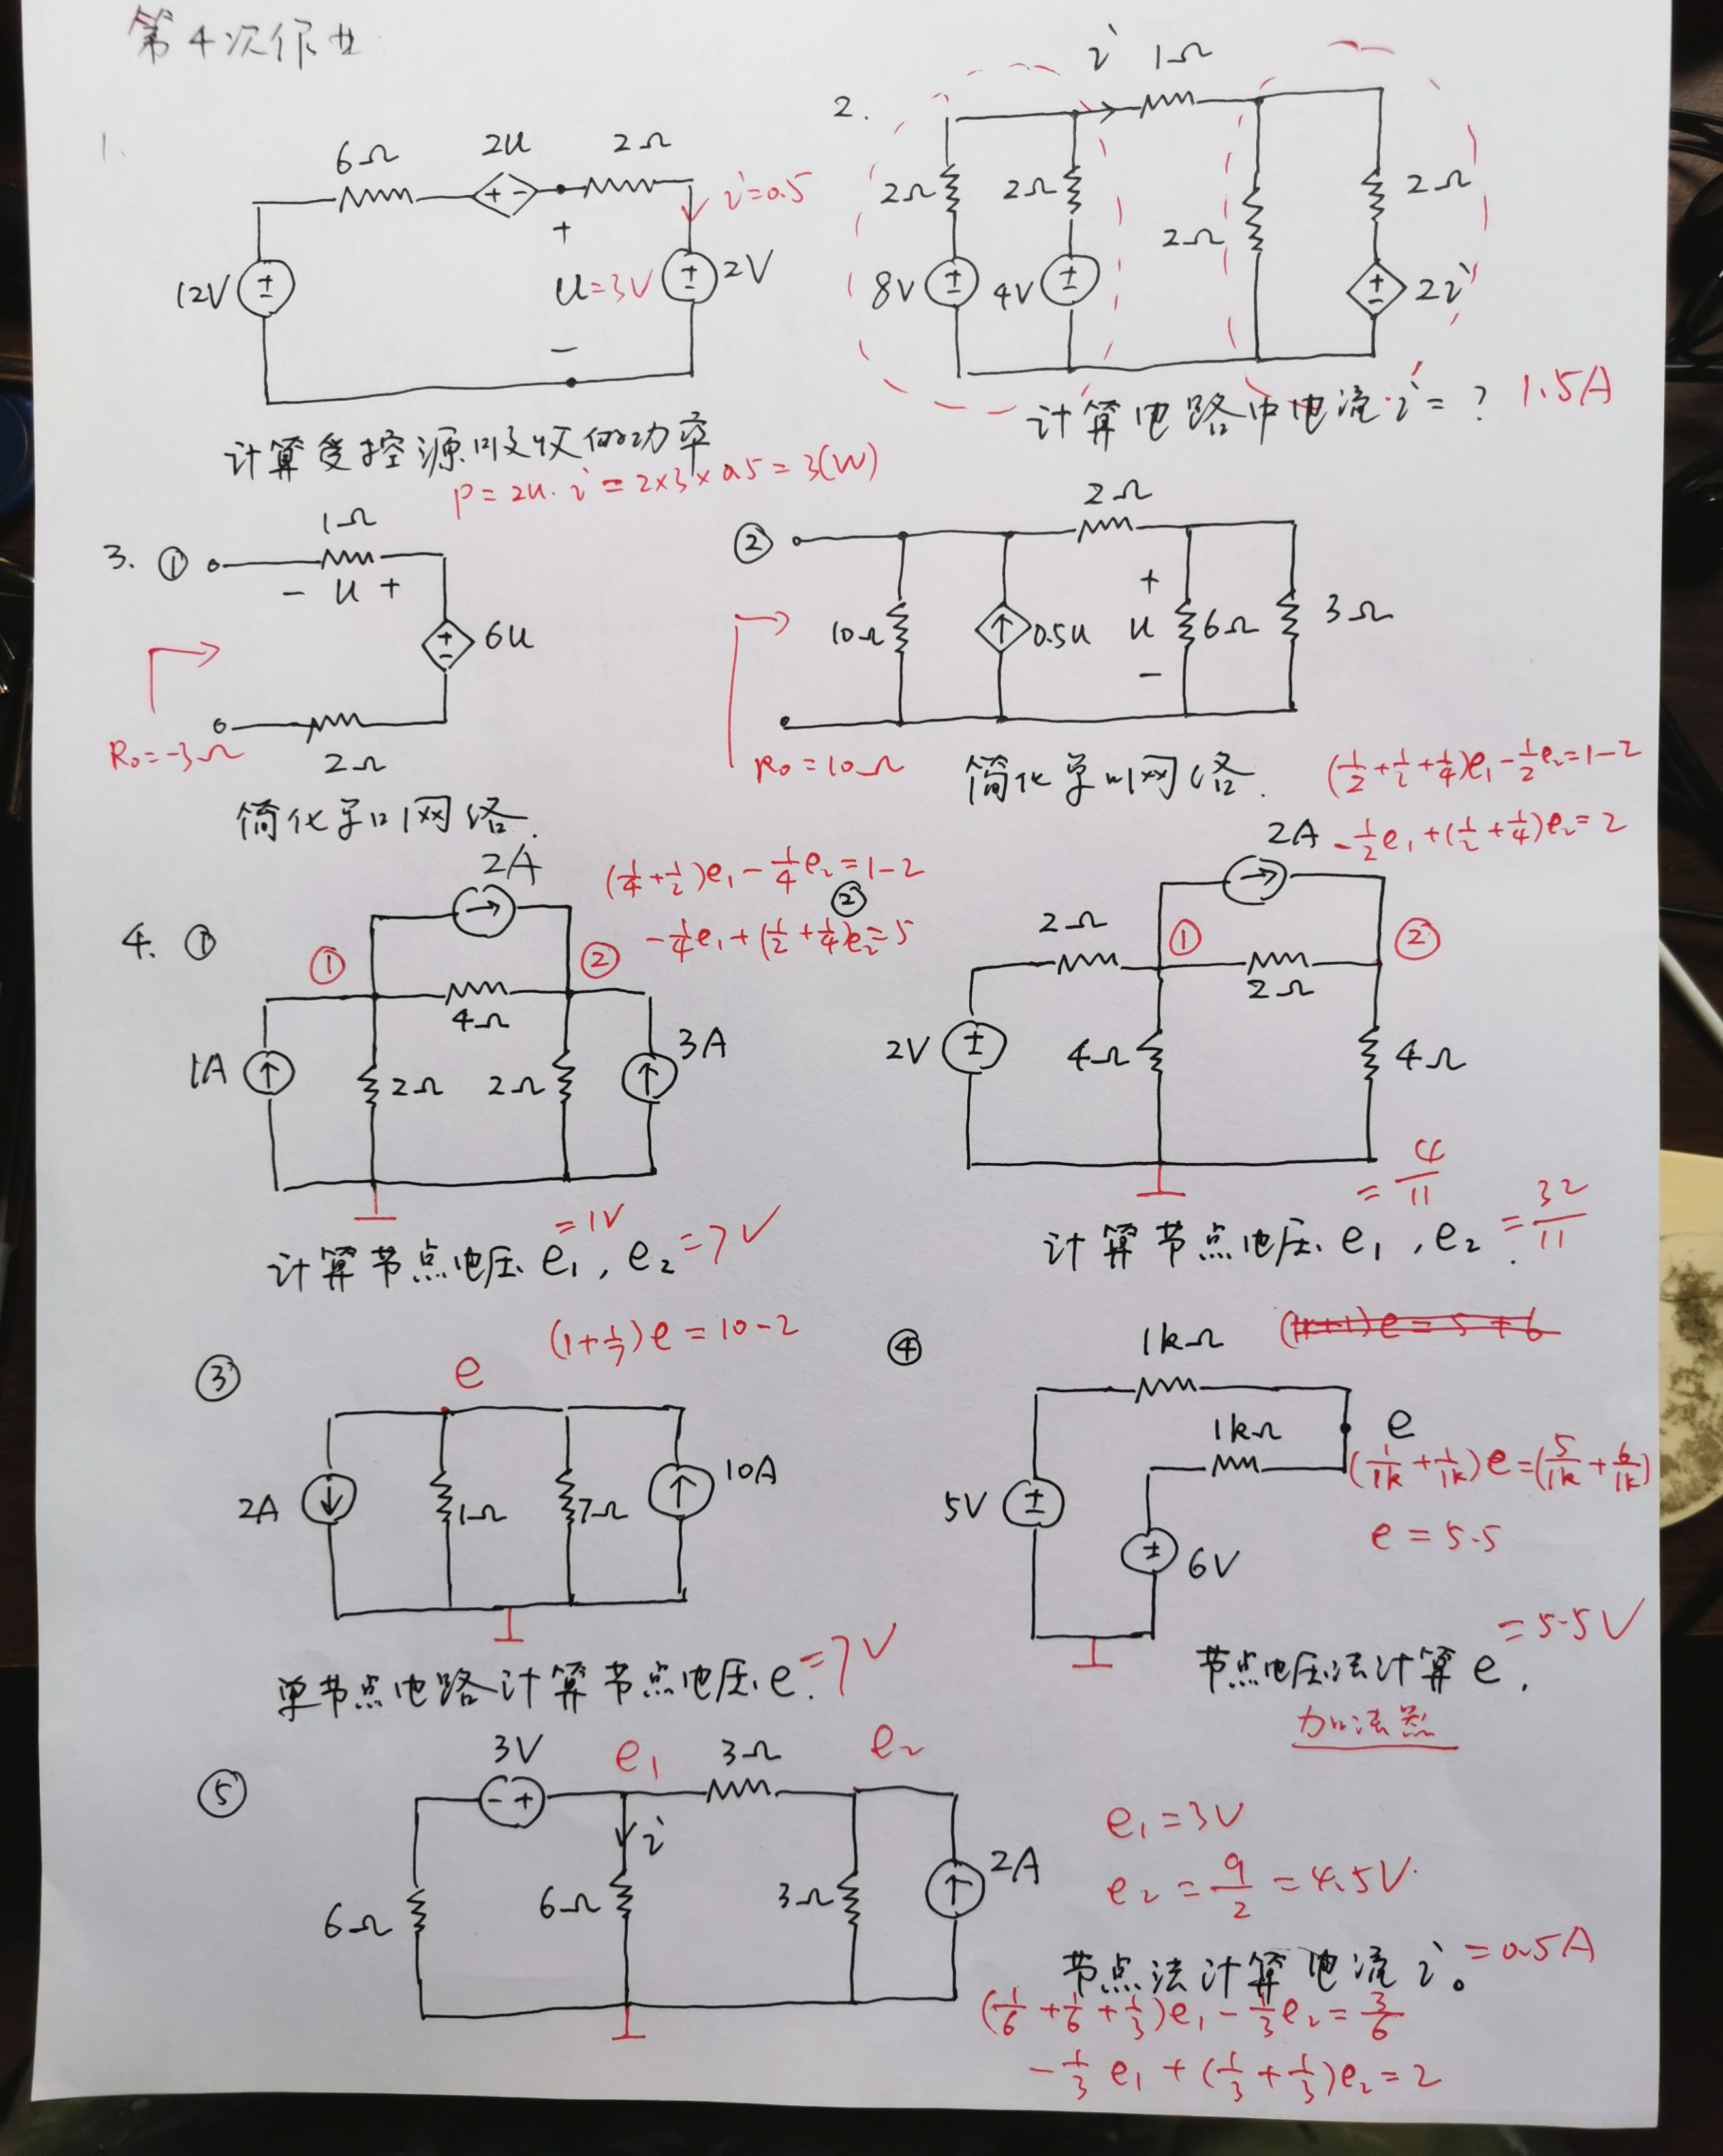 第4次作业
1.
6Ω
2u
2Ω
+ -
i=0.5
+
12V
u=3V
2V
-
计算受控源吸收的功率
P=2u·i=2×3×0.5=3(W)
2.
i
1Ω
2Ω
2Ω
2Ω
2Ω
8V
4V
2i
计算电路中电流i=? 1.5A
3. ①
1Ω
- u +
6u
R₀=-3Ω
2Ω
简化单口网络.
②
2Ω
10Ω
0.5u
+
u
-
6Ω
3Ω
R₀=10Ω
简化单口网络.
4. ①
2A
(1/4+1/2)e₁-1/4e₂=1-2
-1/4e₁+(1/2+1/4)e₂=5
①
②
4Ω
1A
2Ω
2Ω
3A
计算节点电压e₁=1V, e₂=7V
②
(1/2+1/2+1/4)e₁-1/2e₂=1-2
2A
-1/2e₁+(1/2+1/4)e₂=2
2Ω
①
②
2Ω
2V
4Ω
4Ω
计算节点电压e₁=4/11, e₂=32/11.
③
e
(1+1/7)e=10-2
2A
1Ω
7Ω
10A
单节点电路计算节点电压e.=7V
④
1kΩ
1kΩ
e
(1/1k+1/1k)e=(5/1k+6/1k)
5V
e=5.5
6V
节点电压法计算e. =5.5V
加法器
⑤
3V
- +
e₁
3Ω
e₂
i
6Ω
6Ω
3Ω
2A
e₁=3V
e₂=9/2=4.5V.
节点法计算电流i。=0.5A
(1/6+1/6+1/3)e₁-1/3e₂=3/6
-1/3e₁+(1/3+1/3)e₂=2